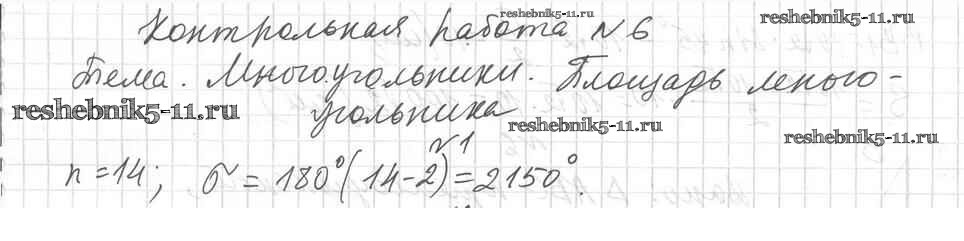 reshebnik5-11.ru
reshebnik5-11.ru
Контрольная работа №6
Тема. Многоугольники. Площадь много-
reshebnik5-11.ru
угольника
reshebnik5-11.ru
reshebnik5-11.ru
№1
n = 14; σ = 180°(14-2) = 2150°.